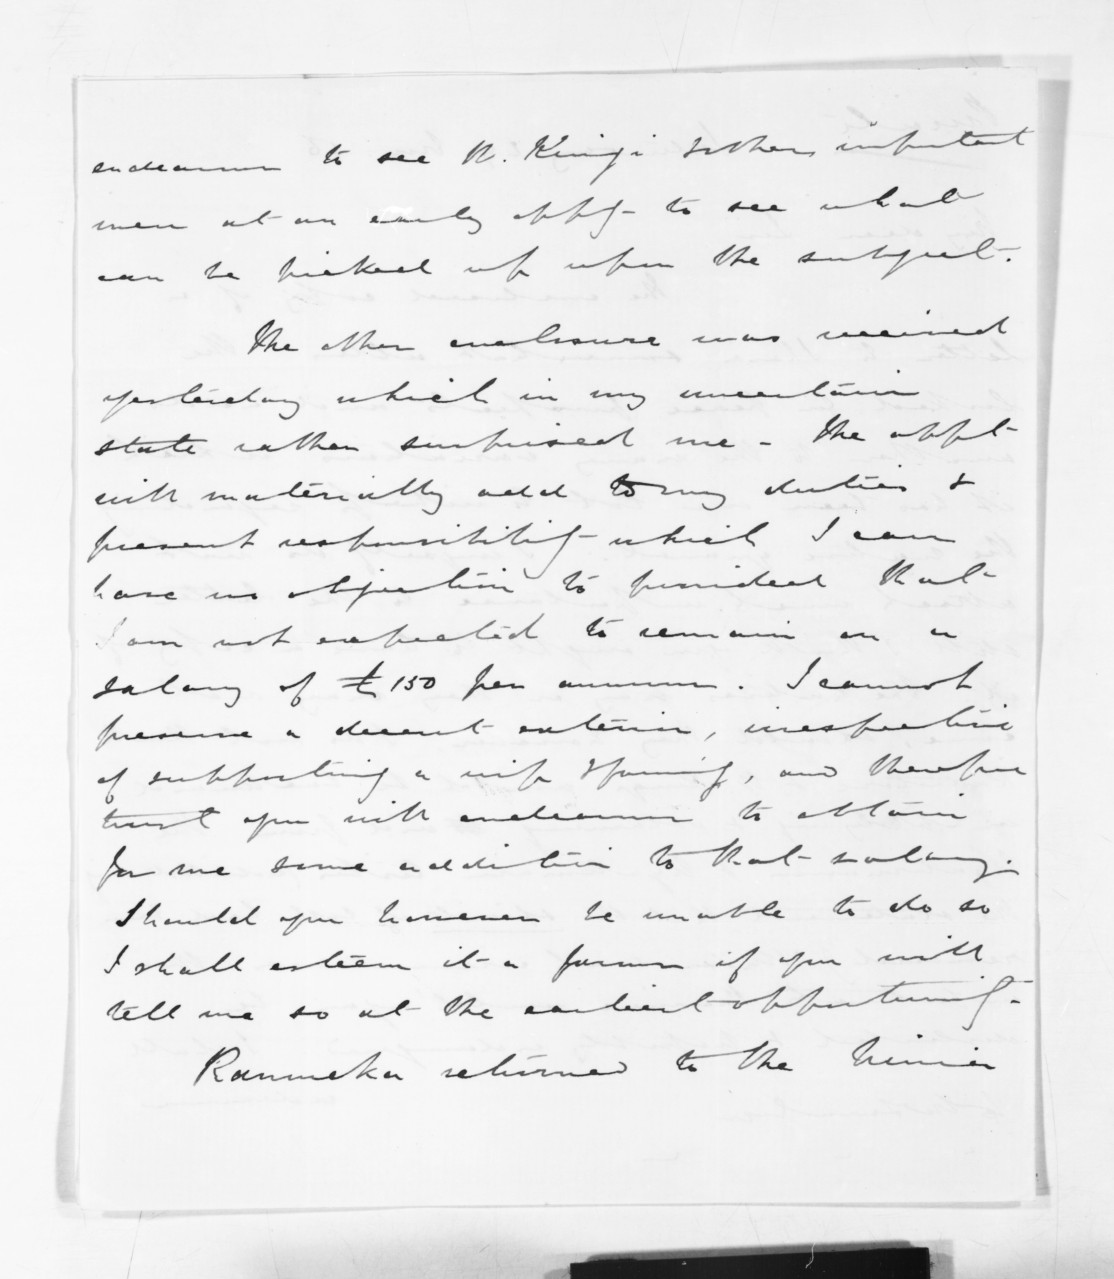 endeavour to see W. Kingi & others important
men at an early oppy to see what
can be picked up upon the subject.
The other enclosure was received
yesterday which in my uncertain
state rather surprised me - The appt
will materially add to my duties &
present responsibility which I can
have no objection to provided that
I am not expected to remain on a
salary of £150 per annum. I cannot
preserve a decent exterior, irrespective
of supporting a wife & family, and therefore
trust you will endeavour to obtain
for me some addition to that salary.
Should you however be unable to do so
I shall esteem it a favour if you will
tell me so at the earliest opportunity -
returned to the